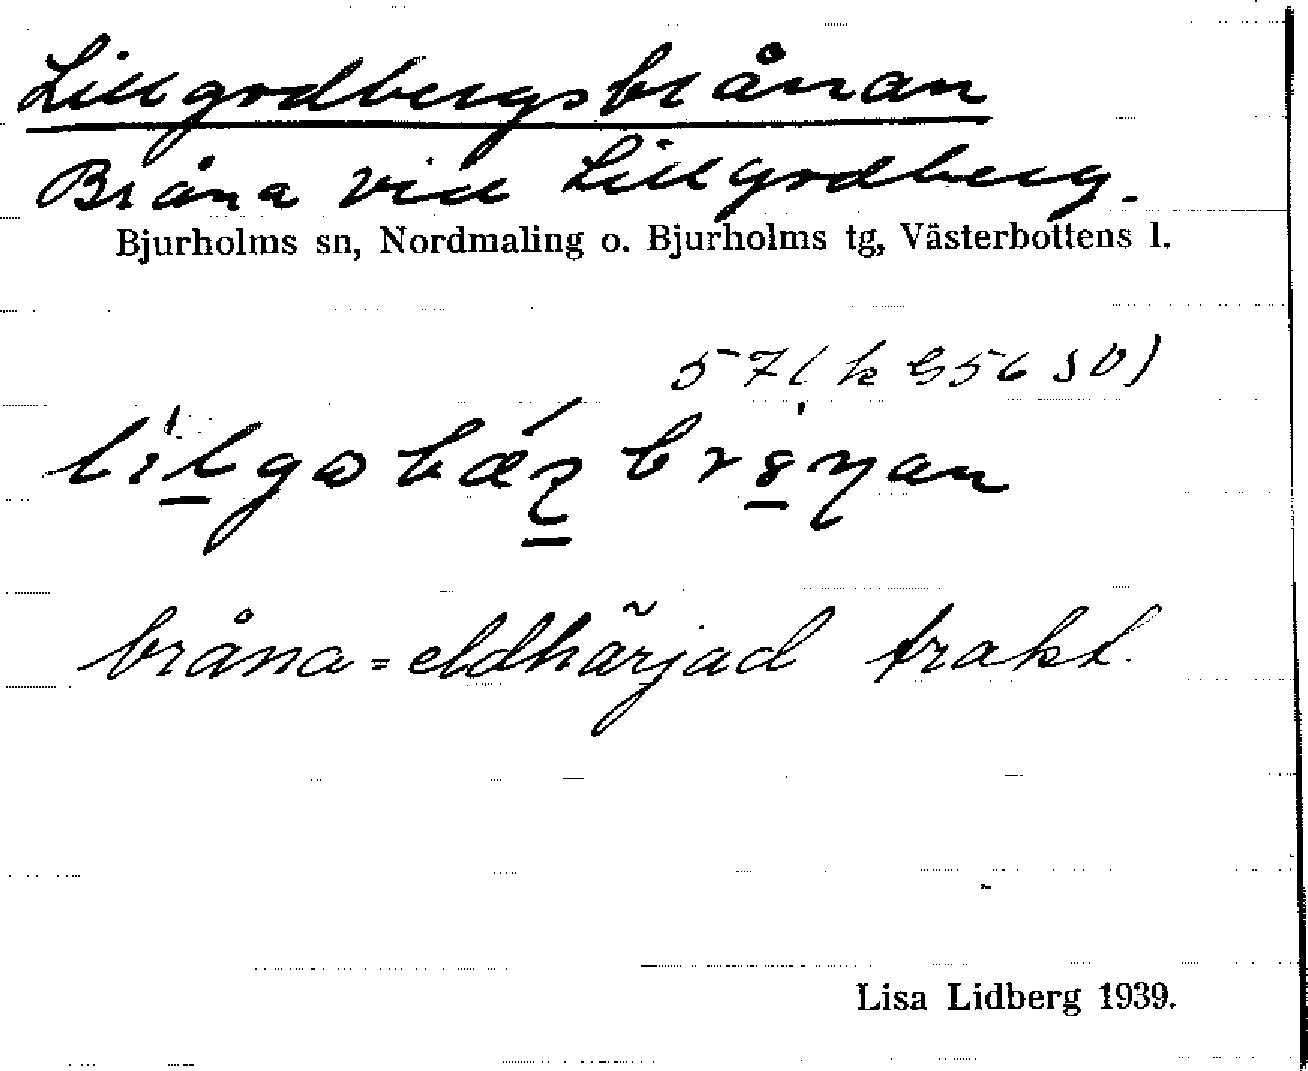 Lillgodbergsbrånan
Bråna vid Lillgodberg.
Bjurholms sn, Nordmaling o. Bjurholms tg, Västerbottens l.
bråna = eldhärjad trakt.
Lisa Lidberg 1939.